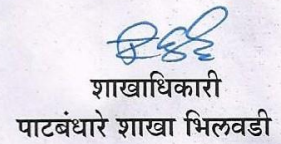 शाखाधिकारी
पाटबंधारे शाखा भिलवडी